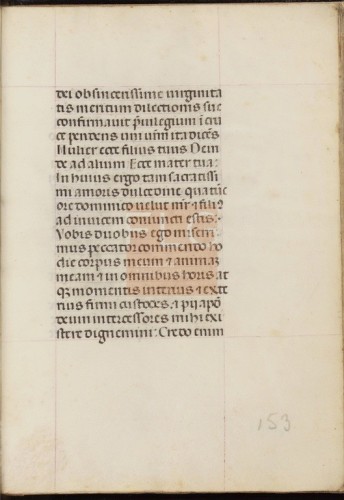 dei ob sincerissime uirginita
tis meritum dilectionis sue
confirmauit p̃uilegium ĩ cru
ce pendens uni uṝm ita dicẽs
Mulier ecce filius tuus Dein
de ad alium Ecce mater tua:
In huius ergo tam sacratissi
mi amoris dulcedine qua tũc
ore dominico uelut mr̃ ⁊ filiꝰ
ad inuicem coniuncti estis:
Vobis duobus ego miserri
mus peccator commendo ho
die corpus meum ⁊ animaz
meam ⁊ in omnibus horis at
qꝫ momentis interius ⁊ exte
rius firmi custodes ⁊ pij apð
deum intercessores mihi exi
stere dignemini: Credo enim
153